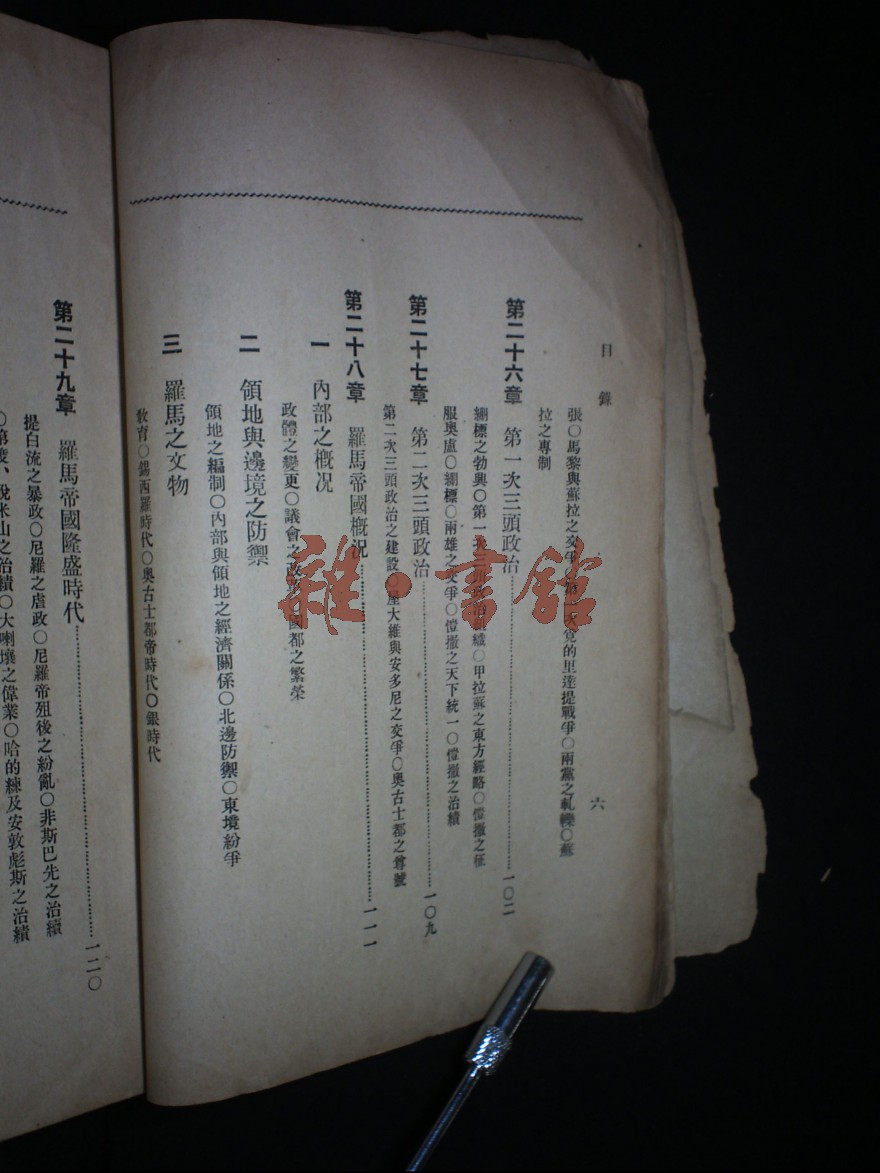 目錄 六
張〇馬黎與蘇拉之交爭〇第一次 的里達提戰爭〇兩黨之軋轢〇蘇
拉之專制
第二十六章 第一次三頭政治 一〇二
繃標之勃興〇第一次三頭政治組織〇甲拉蘇之東方經略〇愷撒之征
服奧盧〇繃標〇兩雄之交爭〇愷撒之天下統一〇愷撒之治績
第二十七章 第二次三頭政治 一〇九
第二次三頭政治之建設〇屋大維與安多尼之交爭〇奧古士都之尊號
第二十八章 羅馬帝國概況 一一一
一 內部之概況
政體之變更〇議會之改 〇國都之繁榮
二 領地與邊境之防禦
領地之編制〇內部與領地之經濟關係〇北邊防禦〇東境紛爭
三 羅馬之文物
教育〇錫西羅時代〇奧古士都帝時代〇銀時代
第二十九章 羅馬帝國隆盛時代 一二〇
提白流之暴政〇尼羅之虐政〇尼羅帝殂後之紛亂〇非斯巴先之治績
〇第度、 米山之治績〇大喇壤之偉業〇哈的練及安敦彪斯之治績
雜·書館